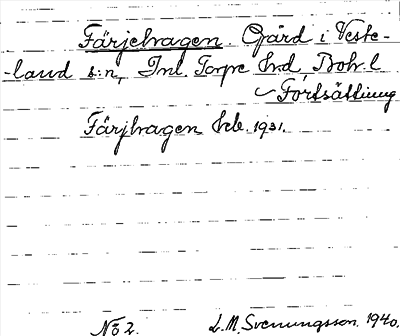 Färjehagen. Gärd i Veste-
-land s:n, Inl. Torpe Hrd, Boh. l
Fortsättning
Färjhagen Seb. 1931.
No 2. L.M. Svenungsson. 1940.